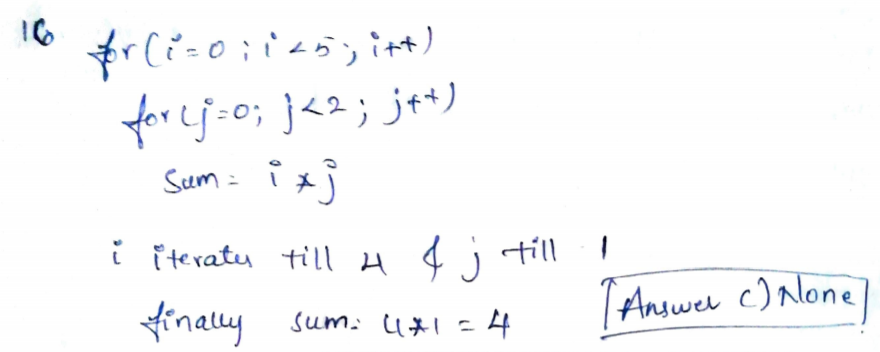 16 for(i=0; i<5; i++)
for(j=0; j<2; j++)
sum= i*j
i iterates till 4 & j till 1
finally sum= 4*1 = 4
Answer c) None